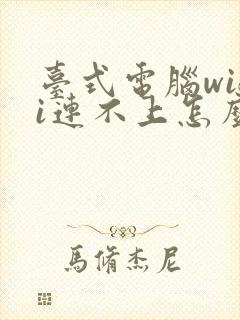 臺式電腦wif
i連不上怎麼
馬脩杰尼